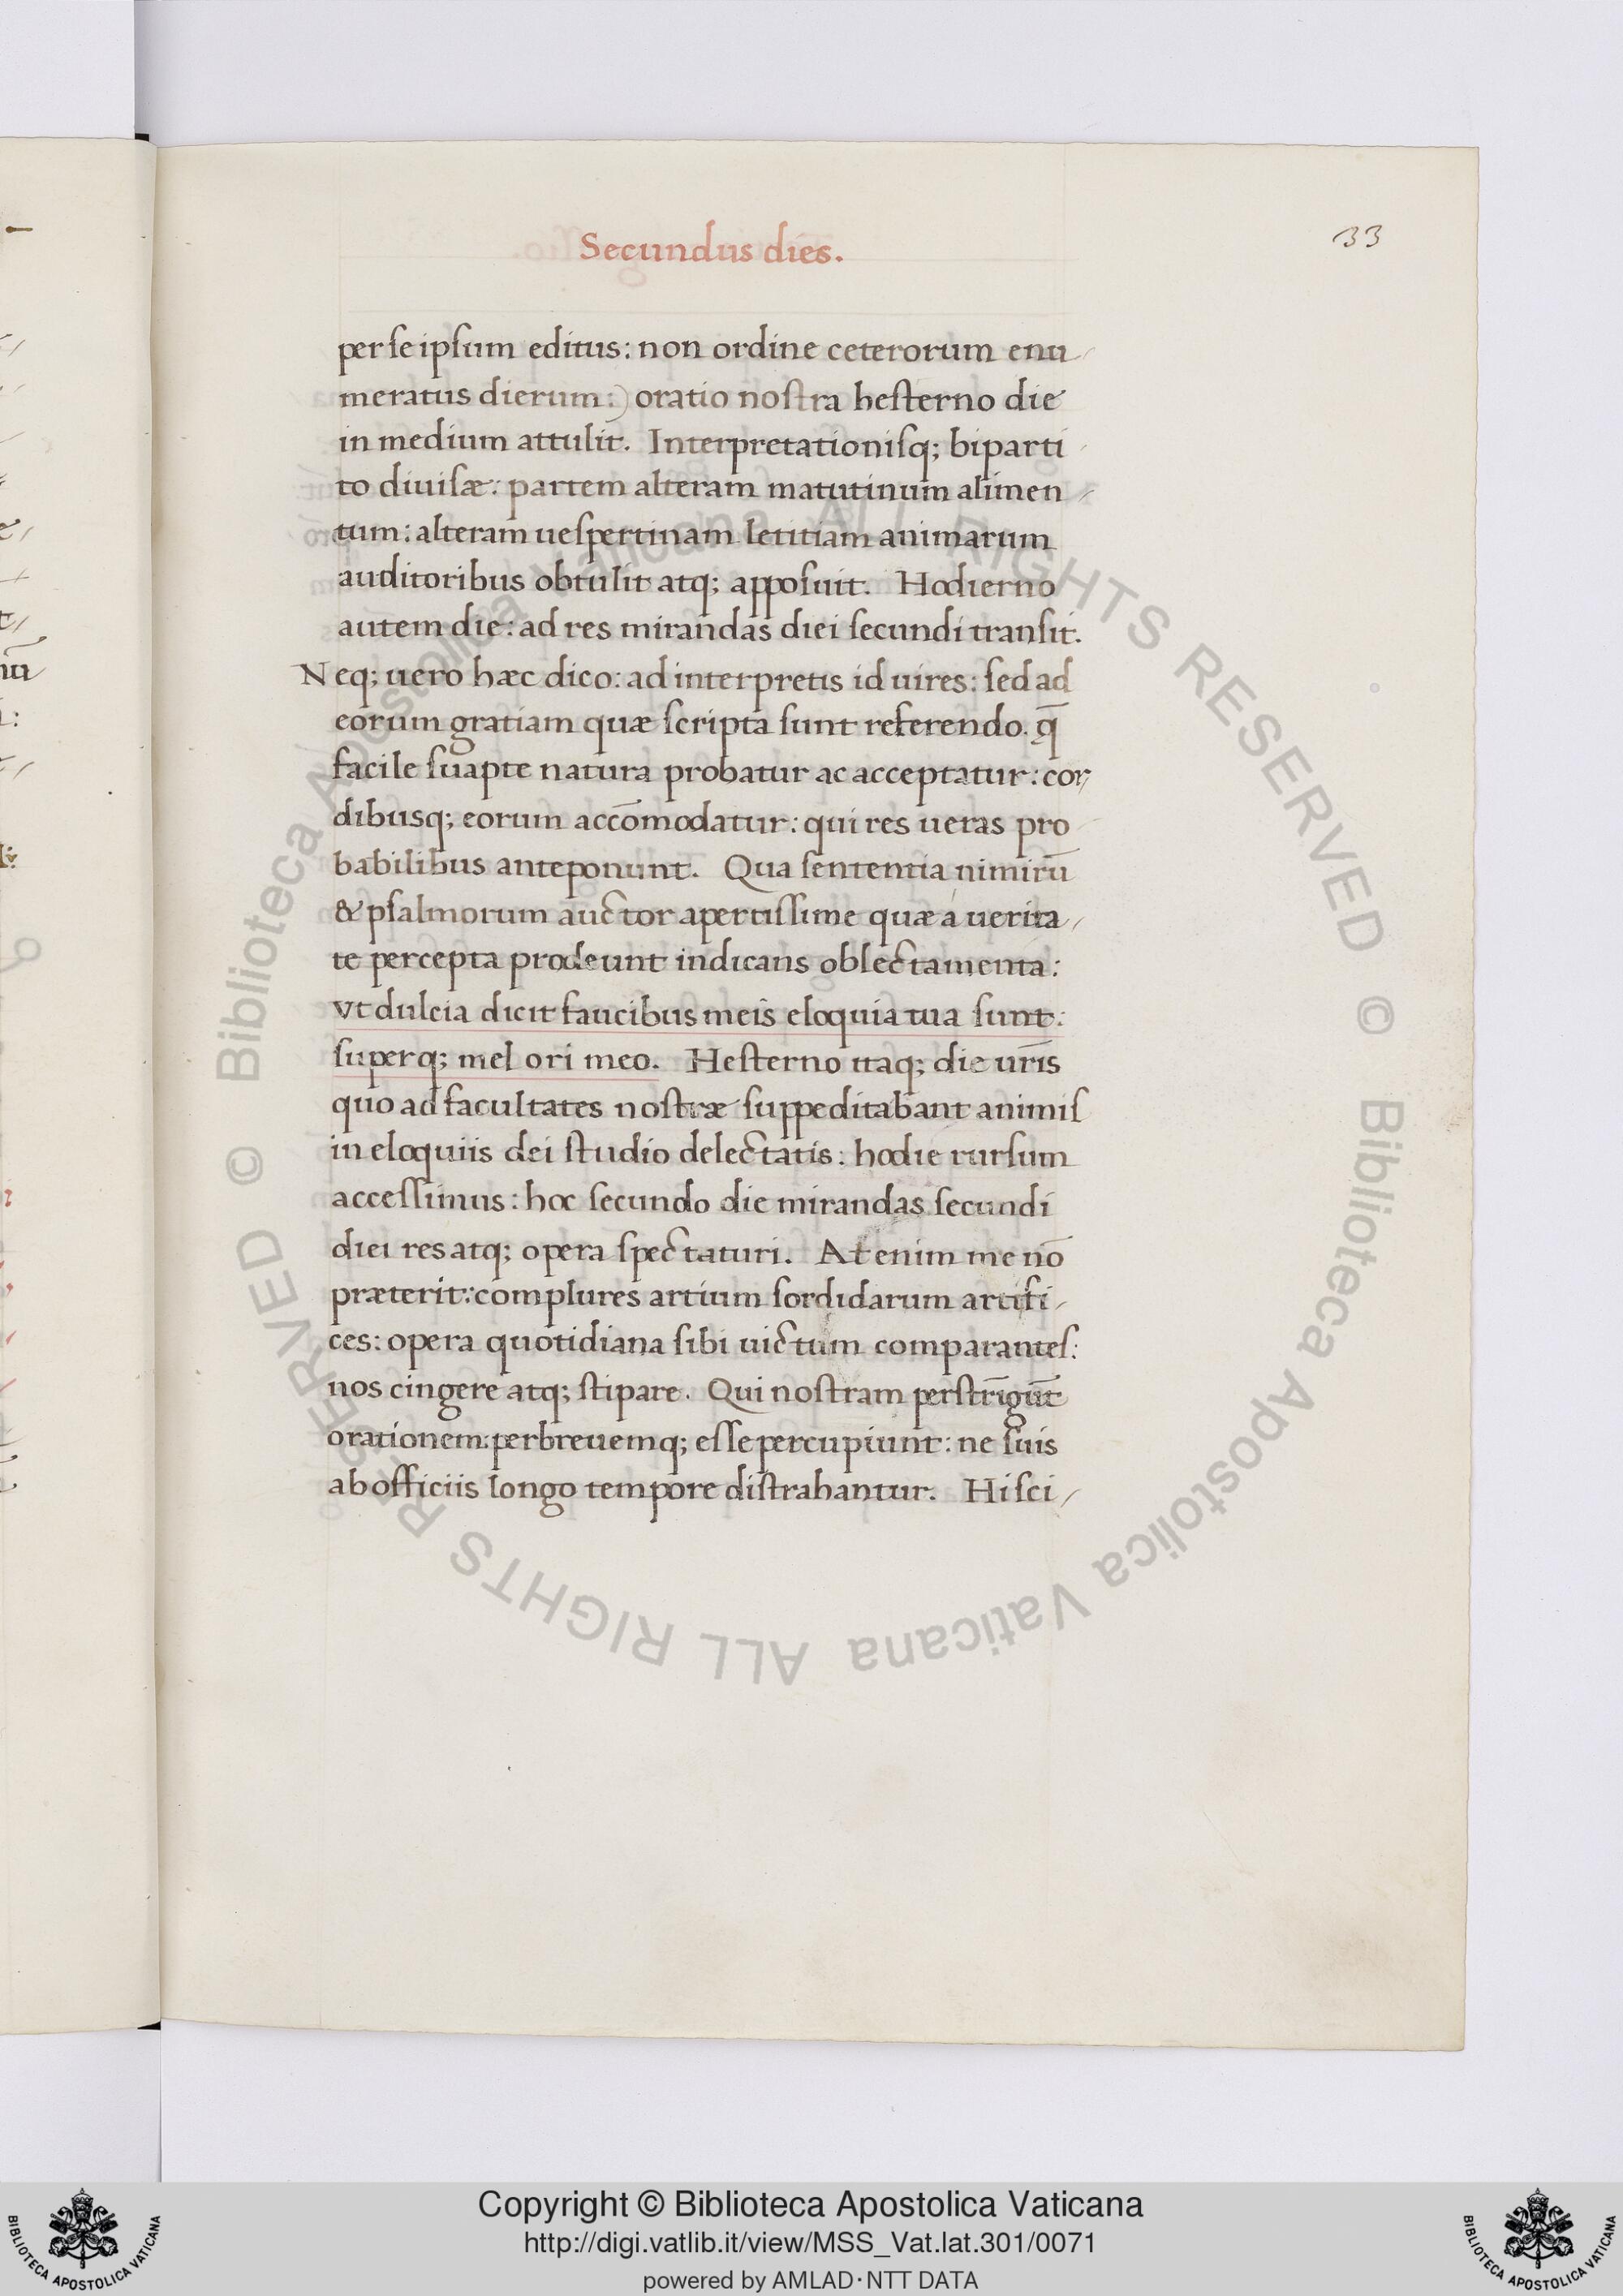 Secundus dies.
33
per se ipſum editus: non ordine ceterorum enu-
meratus dierum:) oratio noſtra heſterno die
in medium attulit. Interpretationiſq; biparti-
to diuiſæ: partem alteram matutinum alimen-
tum: alteram ueſpertinam letitiam animarum
auditoribus obtulit atq; appoſuit. Hodierno
autem die: ad res mirandas diei ſecundi tranſit.
Neq; uero hæc dico: ad interpretis id uires: ſed ad
eorum gratiam quæ ſcripta ſunt referendo. q̄
facile ſuapte natura probatur ac acceptatur: cor-
dibusq; eorum accōmodatur: qui res ueras pro-
babilibus anteponunt. Qua ſententia nimirū
& pſalmorum auctor apertiſſime quæ á uerita-
te percepta prodeunt indicans oblectamenta:
vt dulcia dicit faucibus meis eloquia tua ſunt:
ſuperq; mel ori meo. Heſterno itaq; die ur̄is
quo ad facultates noſtræ ſuppeditabant animiſ
in eloquiis dei ſtudio delectatis: hodie rurſum
acceſſimus: hoc ſecundo die mirandas ſecundi
diei res atq; opera ſpectaturi. At enim me nō
præterit: complures artium ſordidarum artifi-
ces: opera quotidiana ſibi uictum comparanteſ:
nos cingere atq; ſtipare. Qui noſtram perſtrīgūt
orationem: perbreuemq; eſſe percupiunt: ne ſuis
ab officiis longo tempore diſtrahantur. Hi ſci-
Copyright © Biblioteca Apostolica Vaticana
http://digi.vatlib.it/view/MSS_Vat.lat.301/0071
powered by AMLAD·NTT DATA